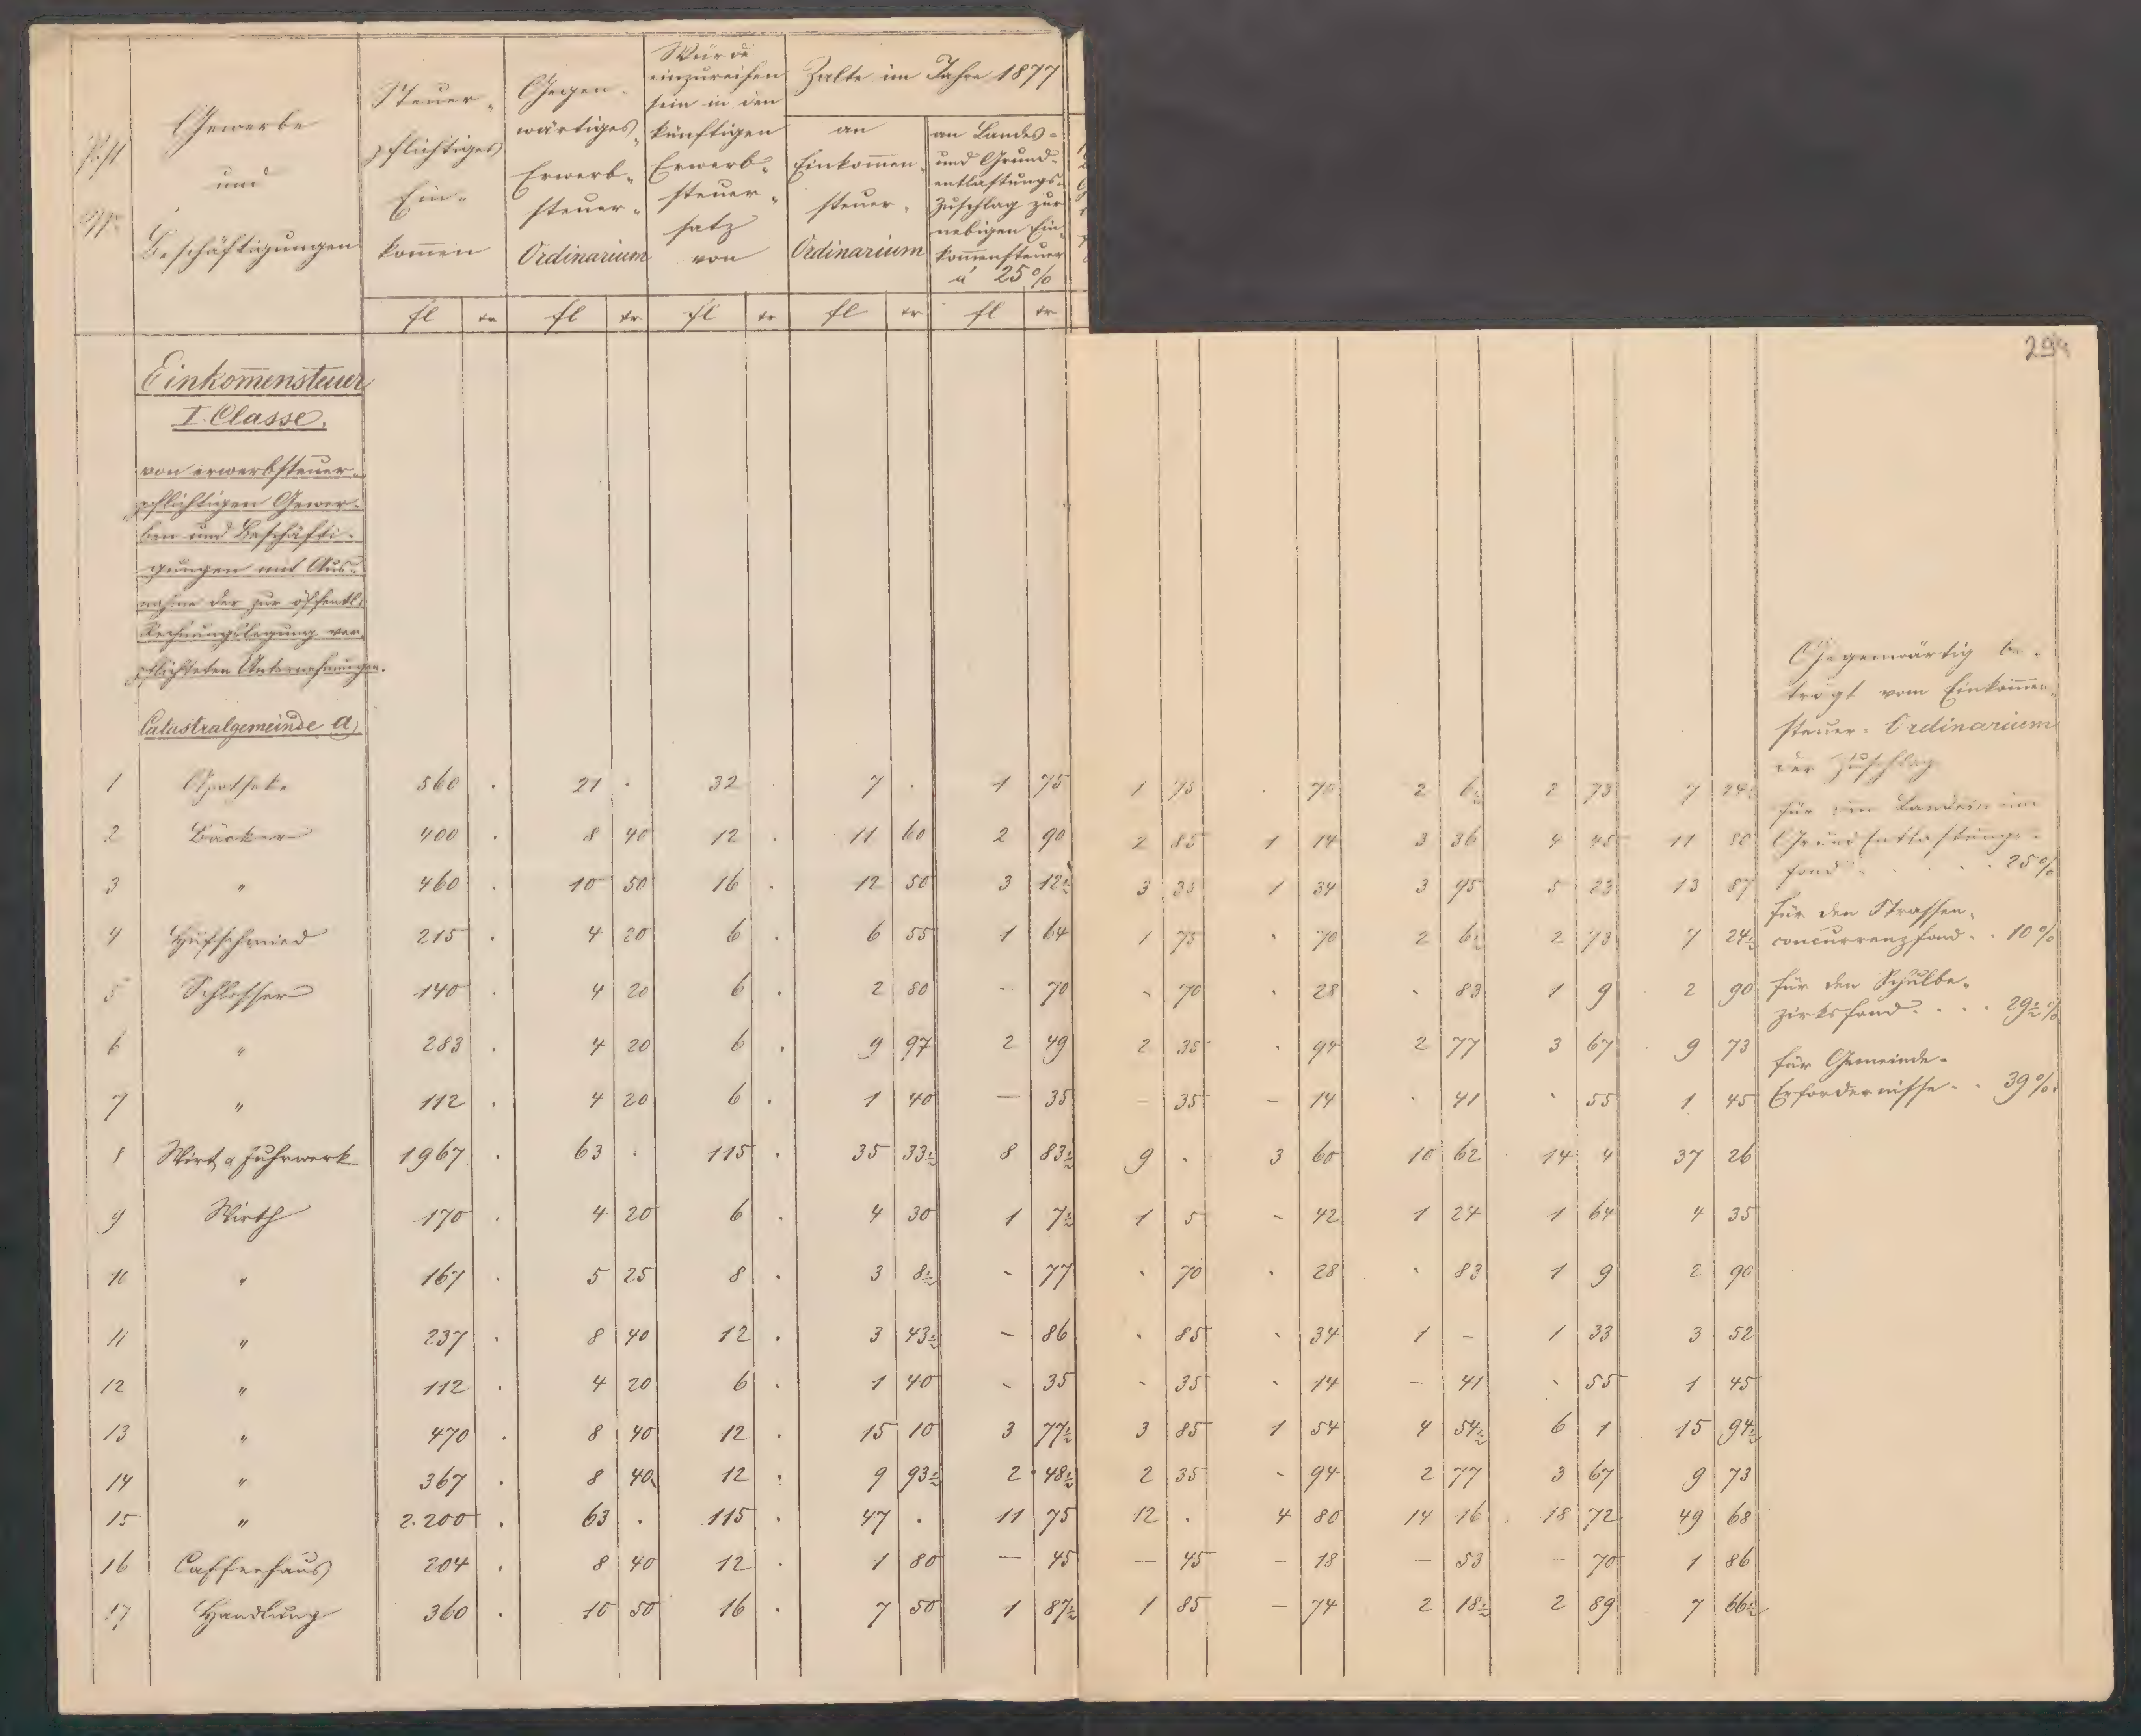 294
Post
Nr.
Gewerbe
und
Beschäftigungen
Steuer-
pflichtiges
Ein-
kom̄en
Gegen-
wärtiges
Erwerb-
steuer-
Ordinarium
Würde
einzureihen
sein in den
künftigen
Erwerb-
steuer-
satz
von
Zalte im Jahre 1877
an
Einkom̄en-
steuer-
Ordinarium
an Landes-
und Grund-
entlastungs-
Zuschlag zur
nebigen Ein-
kom̄ensteuer
à 25%
fl kr fl kr fl kr fl kr fl kr
Einkom̄ensteuer
I. Classe.
von erwerbsteuer-
pflichtigen Gewer-
ben und Beschäfti-
gungen mit Aus-
nahme der zur öffentl.
Rechnungslegung ver-
pflichteten Unternehmungen.
Catastralgemeinde a)
1 Apotheke 560 . 21 . 32 . 7 . 1 75 1 75 . 70 2 6½ 2 73 7 24½
2 Bäcker 400 . 8 40 12 . 11 60 2 90 2 85 1 14 3 36 4 45 11 80
3 " 460 . 10 50 16 . 12 50 3 12½ 3 35 1 34 3 95 5 23 13 87
4 Hufschmied 215 . 4 20 6 . 6 55 1 64 1 75 . 70 2 6½ 2 73 7 24½
5 Schlosser 140 . 4 20 6 . 2 80 – 70 - 70 . 28 . 83 1 9 2 90
6 " 283 . 4 20 6 . 9 97 2 49 2 35 . 94 2 77 3 67 9 73
7 " 112 . 4 20 6 . 1 40 – 35 – 35 – 14 . 41 . 55 1 45
8 Wirt u Fuhrwerk 1967 . 63 . 115 . 35 33½ 8 83½ 9 . 3 60 10 62 14 4 37 26
9 Wirth 170 . 4 20 6 . 4 30 1 7½ 1 5 - 42 1 24 1 64 4 35
10 " 167 . 5 25 8 . 3 8½ - 77 . 70 . 28 . 83 1 9 2 90
11 " 237 . 8 40 12 . 3 43½ – 86 . 85 . 34 1 – 1 33 3 52
12 " 112 . 4 20 6 . 1 40 - 35 - 35 . 14 – 41 . 55 1 45
13 " 470 . 8 40 12 . 15 10 3 77½ 3 85 1 54 4 54½ 6 1 15 94½
14 " 367 . 8 40 12 . 9 93½ 2 48½ 2 35 - 94 2 77 3 67 9 73
15 " 2.200 . 63 . 115 . 47 . 11 75 12 . 4 80 14 16 18 72 49 68
16 Caffeehaus 204 . 8 40 12 . 1 80 – 45 – 45 – 18 – 53 – 70 1 86
17 Handlung 360 . 10 50 16 . 7 50 1 87½ 1 85 – 74 2 18½ 2 89 7 66½
Gegenwärtig be-
trägt vom Einkom̄en-
steuer-Ordinarium
der Zuschlag
für den Landes- und
Grund Entlastungs-
fond . . . 25%
für den Strassen-
concurrenzfond . . 10%
für den Schulbe-
zirksfond . . . . 29½%
für Gemeinde-
Erfordernisse . . 39%.